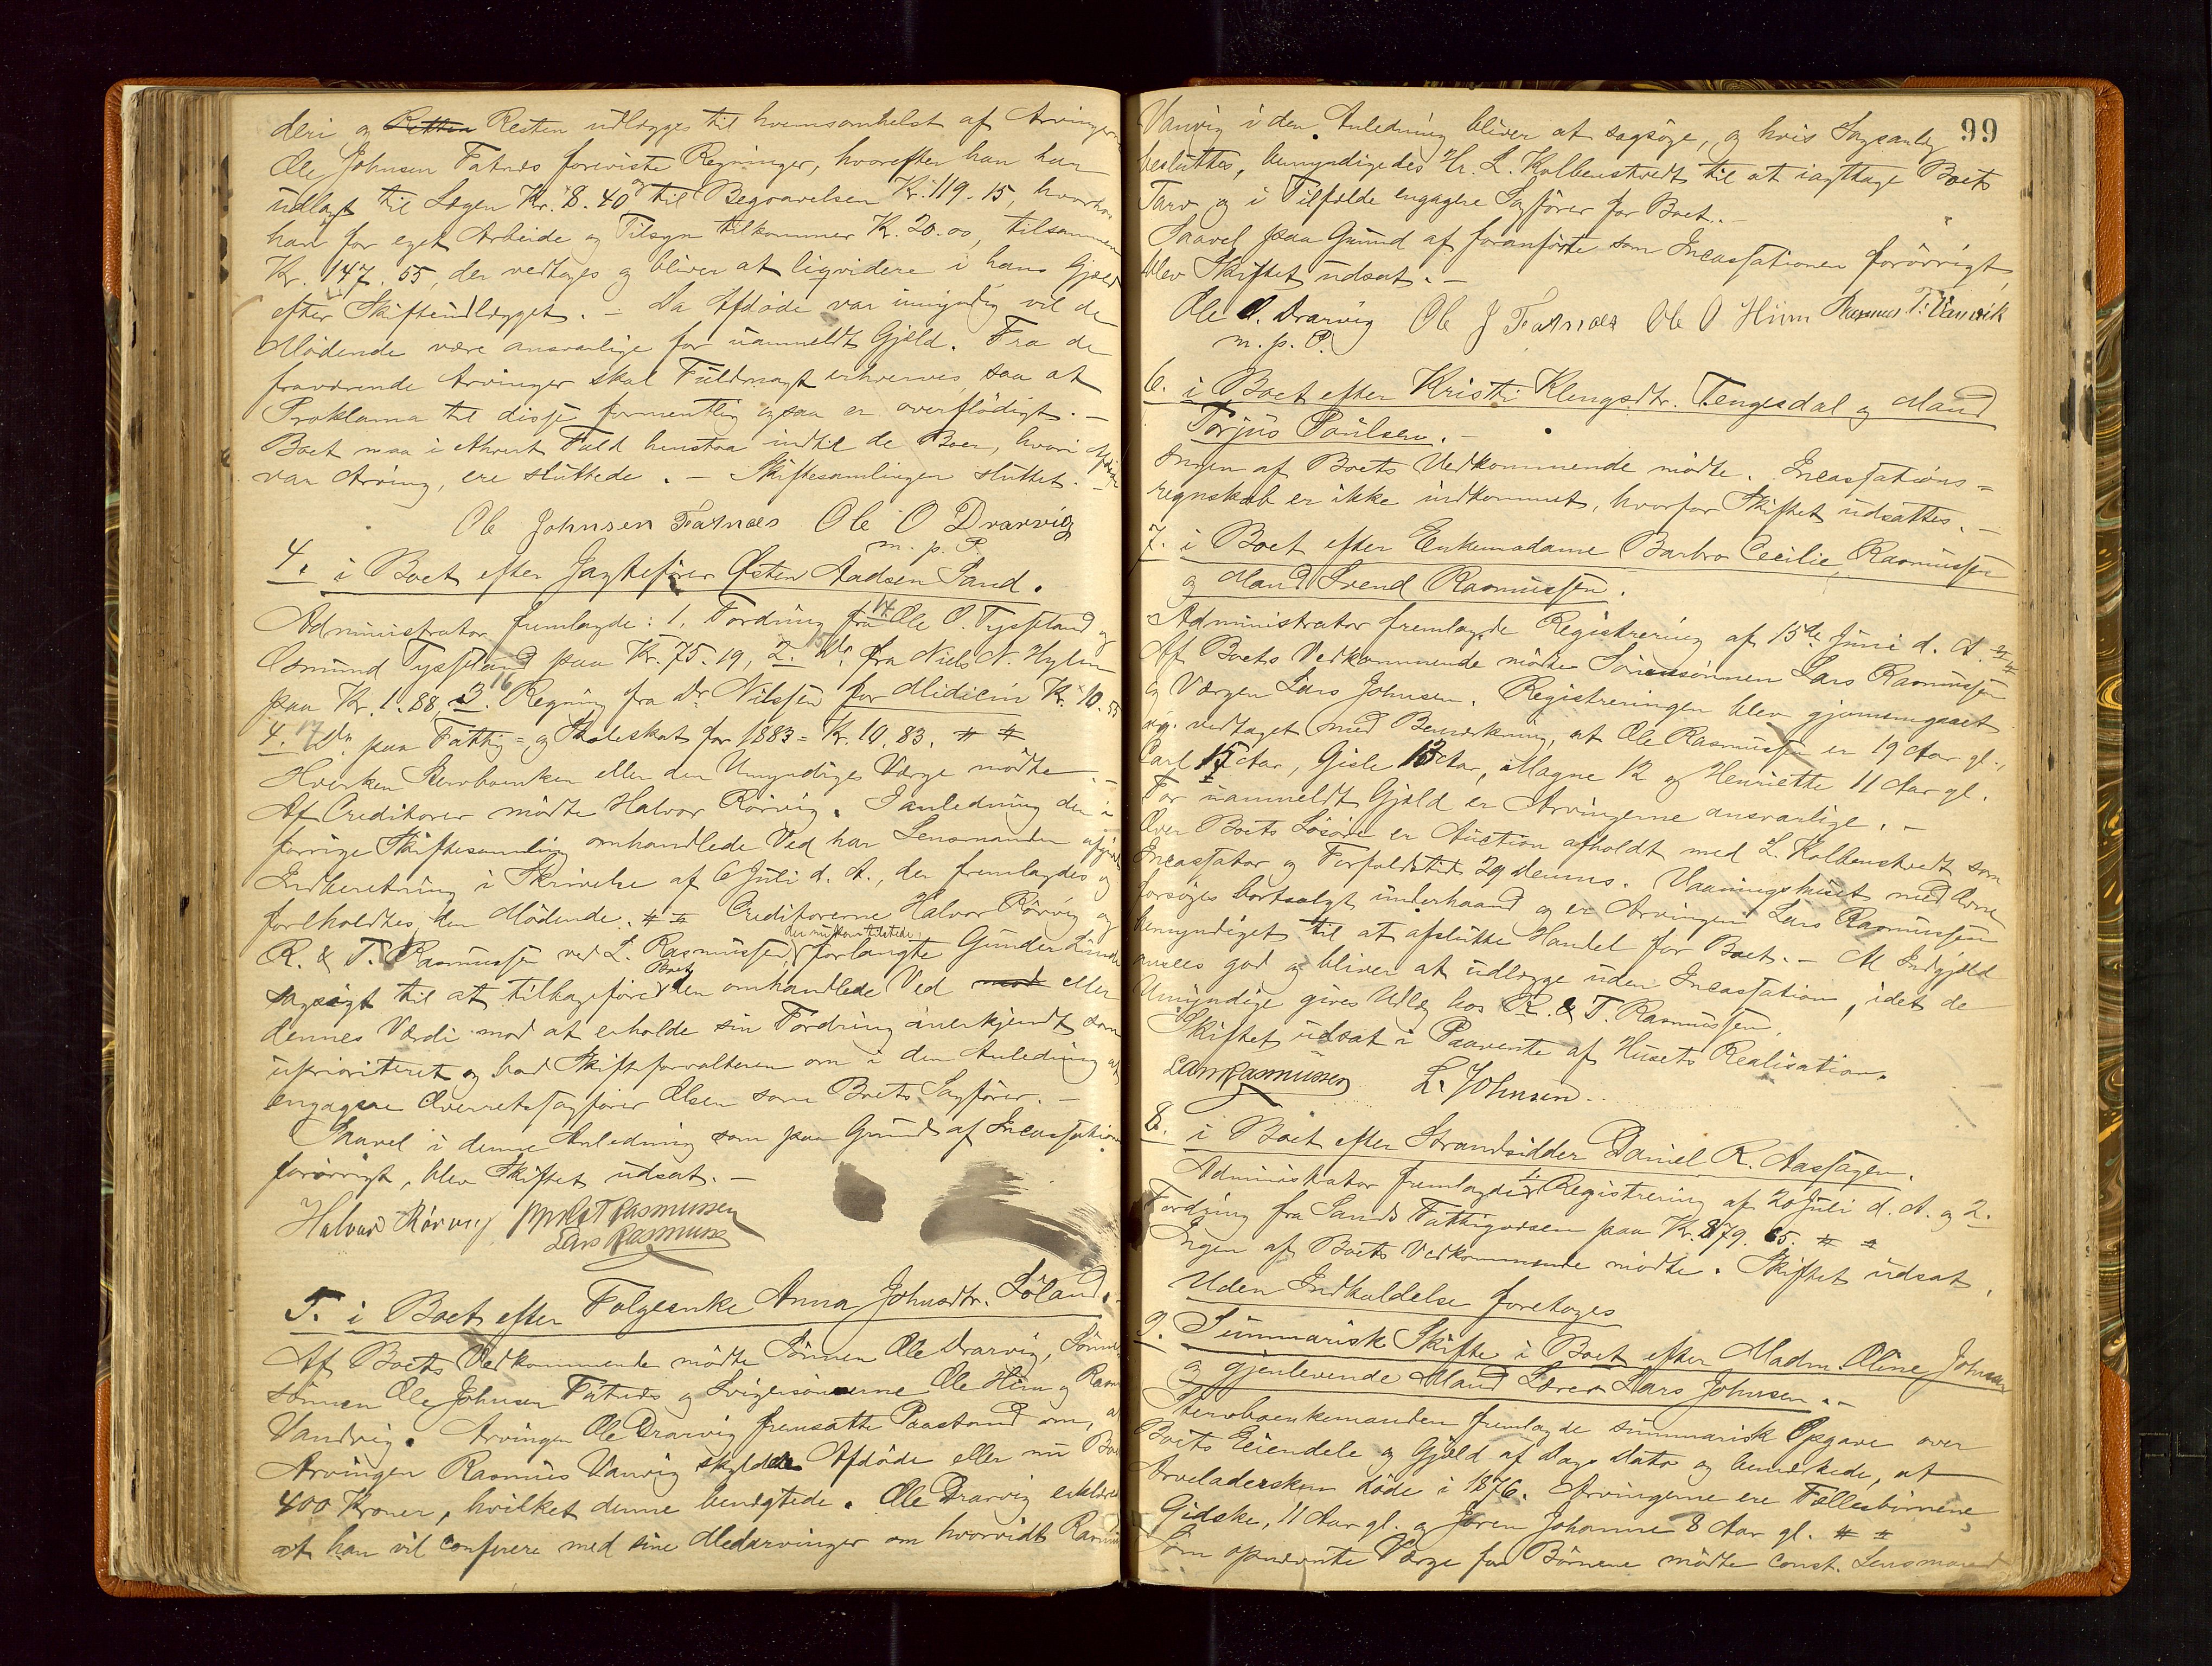 deri og Retten Resten udlægges til hvemsomhelst af Arvingerne
Ole Johnsen Fatnæs foreviste Regninger, hvorefter han har
udlagt til Lægen Kr. 8.40 og til Begravelsen Kr. 119.15, hvorhos
han for eget Arbeide og Tilsyn tilkommer K. 20.00, tilsammen
Kr. 147.55, der vedtoges og bliver at liqvidere i hans Gjæld
efter Skifteudlægget. – Da Afdøde var umyndig vil de
Mødende være ansvarlige for uanmeldt Gjæld. Fra de
fraværende Arvinger skal Fuldmagt erhverves, saa at
Proklama til disse formentlig ogsaa er overflødigt. –
Boet maa i ethvert Fald henstaa indtil de Boer, hvori Afdøde
var Arving, ere sluttede. – Skiftesamlingen sluttet. –
Ole Johnsen Fatnæs Ole O Drarvig
m. p. P.
4. i Boet efter Jagtefører Østen Aadsen Sand.
Administrator fremlagde: 1. Fordring fra Ole O. Tysseland og
14
Osmund Tysseland paa Kr. 75.19, 2. do fra Niels N. Hylen
15
paa Kr. 1.88, 3. Regning fra Dr Nilssen for Midicin Kr. 10.55
16
4. Do paa Fattig- og Skoleskat for 1883 = Kr. 10.83. # #
17
Hverken Stervboenken eller den Umyndiges Værge mødte. –
Af Creditorer mødte Halvor Rørvig. I anledning den i
forrige Skiftesamling omhandlede Ved har Lensmanden afgivet
Indberetning i Skrivelse af 6 Juli d. A., der fremlagdes og
forholdtes den Mødende. # # Creditorerne Halvor Rørvig og
der nu kom tilstede
R. & T. Rasmussen ved L. Rasmussen, forlangte Gunder Lunde
Boet
sagsøgt til at tilbageføre den omhandlede Ved mod eller
dennes Værdi mod at erholde sin Fordring anerkjendt som
uprioriteret og bad Skifteforvalteren om i den Anledning at
engagere Overretssagfører Olsen som Boets Sagfører. –
Saavel i denne Anledning som paa Grund af Incassation
forøvrigt, blev Skiftet udsat. –
Halvor Rørvig pp R & T Rasmussen
Lars Rasmussen
5. i Boet efter Følgeenke Anna Johnsdtr. Løland.
Af Boets Vedkommende mødte Sønnen Ole Drarvig, Sønne-
sønnen Ole Johnsen Fatnæs og Svigersønnerne Ole Hiim og Rasm
Vandvig. Arvingen Ole Drarvig fremsatte Paastand om, at
Arvingen Rasmus Vanvig skylder Afdøde eller nu Boet
400 Kroner, hvilket denne benægtede. Ole Drarvig erklærede
at han vil conferere med sine Medarvinger om hvorvidt Rasmus
99
Vanvig i den Anledning bliver at sagsøge, og hvis Sagsanlæg
besluttes, bemyndigedes Hr. L. Kolbenstvedt til at iagttage Boets
Tarv og i Tilfælde engagere Sagfører for Boet. –
Saavel paa Grund af foranførte som Incassationen forøvrigt,
blev Skiftet udsat. –
Ole O. Drarvig Ole J Fatnæs Ole O Hiim Rasmus T: Vanvik
m. p. P.
6. i Boet efter Kristi Klengsdtr. Tengesdal og Mand
Torjus Poulsen. –
Ingen af Boets Vedkommende mødte. Incassations-
regnskab er ikke indkommet, hvorfor Skiftet udsattes. –
7. i Boet efter Enkemadame Barbro Cecilie Rasmussen
og Mand Svend Rasmussen.
Administrator fremlagde Registrering af 15de Juni d. A. # #
Af Boets Vedkommende mødte Sønnesønnen Lars Rasmussen
og Værgen Lars Johnsen. Registreringen blev gjennemgaaet
og vedtaget med Bemærkning, at Ole Rasmussen er 19 Aar gl.,
Carl 15 Aar, Gisle 13 Aar, Magne 12 og Henriette 11 Aar gl.
For uanmeldt Gjæld er Arvingerne ansvarlige. –
Over Boets Løsøre er Auction afholdt med L. Kolbenstvedt som
Incassator og Forfaldstid 29 dennes. Vaaningshuset med
forsøges bortsolgt underhaand og er Arvingen Lars Rasmussen
bemyndiget til at afslutte Handel for Boet. – Al Indgjæld
ansees god og bliver at udlægge uden Incassation, idet de
Umyndige gives Udlæg hos R. & T. Rasmussen.
Skiftet udsat i Paavente af Husets Realisation.
Lars Rasmussen L. Johnsen.
8. i Boet efter Strandsidder Daniel R. Aassagen.
Administrator fremlagde 1. Registrering af 20 Juli d. A. og 2.
Fordring fra Sands Fattigvæsen paa Kr. 879.65. # #
Ingen af Boets Vedkommende mødte. Skiftet udsat.
Uden Indkaldelse foretoges
9. Summarisk Skifte i Boet efter Madm Oline Johnsen
og gjenlevende Mand Lærer Lars Johnsen. –
Stervboenkemanden fremlagde summarisk Opgave over
Boets Eiendele og Gjæld af Dags Dato og bemærkede, at
Arveladersken døde i 1876. Arvingerne ere Fællesbørnene
Gidske, 11 Aar gl. og Jøren Johanne 8 Aar gl. # #
Som opnævnte Værge for Børnene mødte const. Lensmand